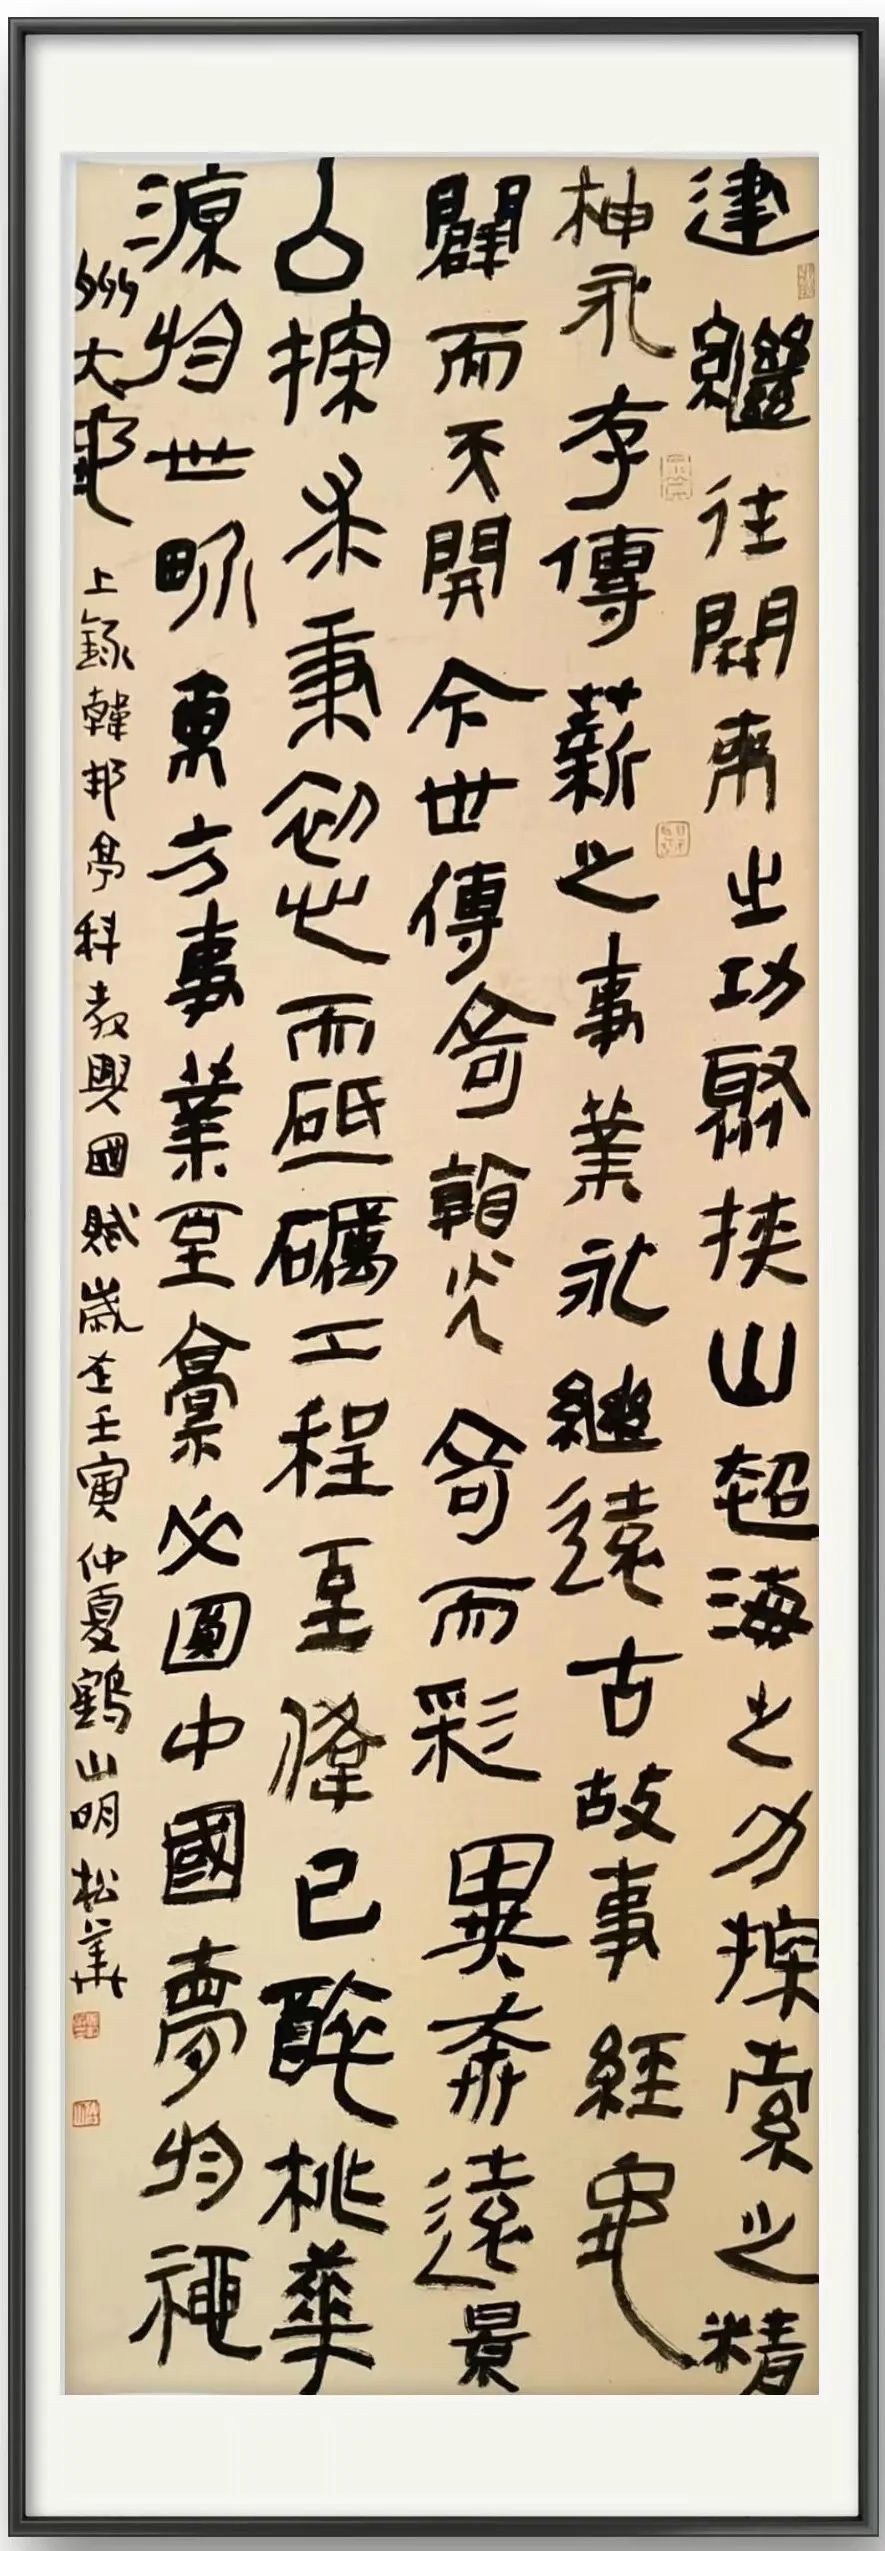 建繼往開來之功聚挾山超海之力探索之精
神永存傳薪之事業永繼遠古故事經典
闢而天開今世傳奇翰光奇而彩異奔遠景
以探求秉初心而砥礪工程至偉已酔桃華
源物世界東方事業至豪必圓中國夢物神
州大夢
上錄韓邦亭科教興國賦歲在壬寅仲夏鶴山明松華